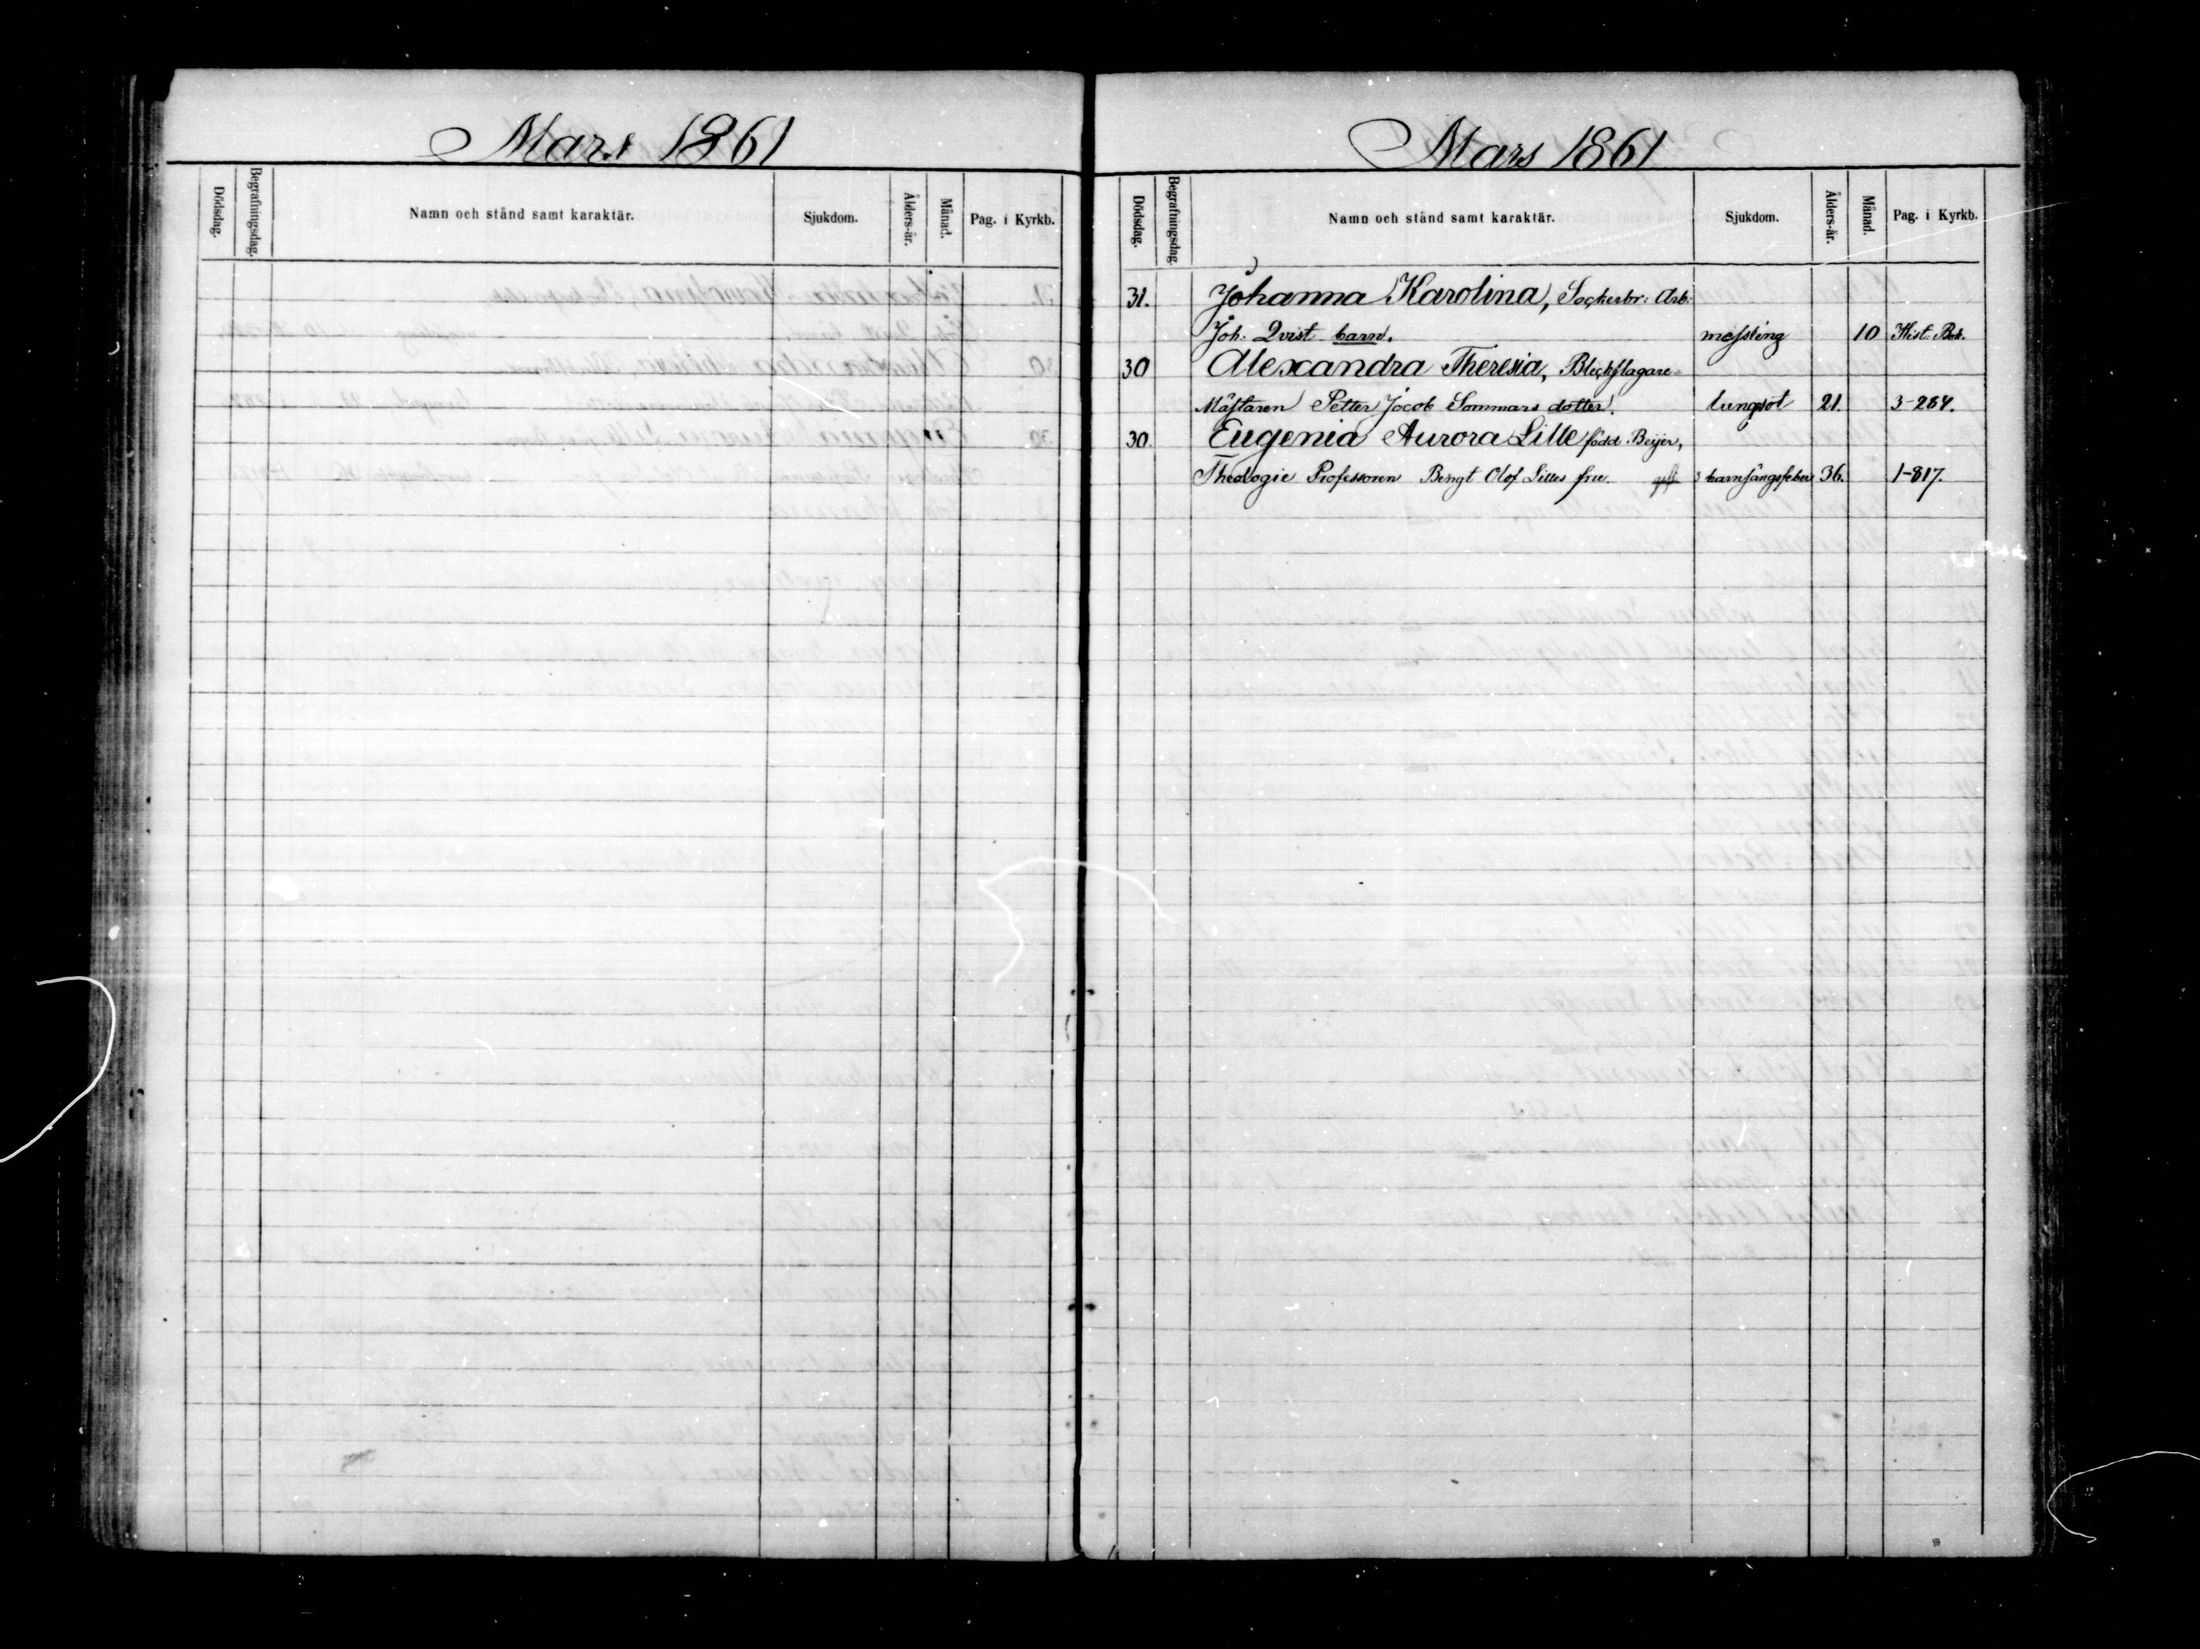 Mars 1861
Dödsdag. Begrafningsdag. Namn och stånd samt karaktär. Sjukdom. Ålders-år. Månad. Pag. i Kyrkb.
Mars 1861
Dödsdag. Begrafningsdag. Namn och stånd samt karaktär. Sjukdom. Ålders-år. Månad. Pag. i Kyrkb.
31. Johanna Karolina, Sockerbr: Arb:
Joh. Qvist barn. messling 10 Hist. Bok.
30 Alexandra Theresia, Bleckslagare-
Mästaren Petter Jacob Sommars dotter. lungsot 21. 3-264.
30. Eugenia Aurora Lille född Beijer,
Theologie Professoren Bengt Olof Lilles fru. gift barnsängsfeber 36. 1-817.